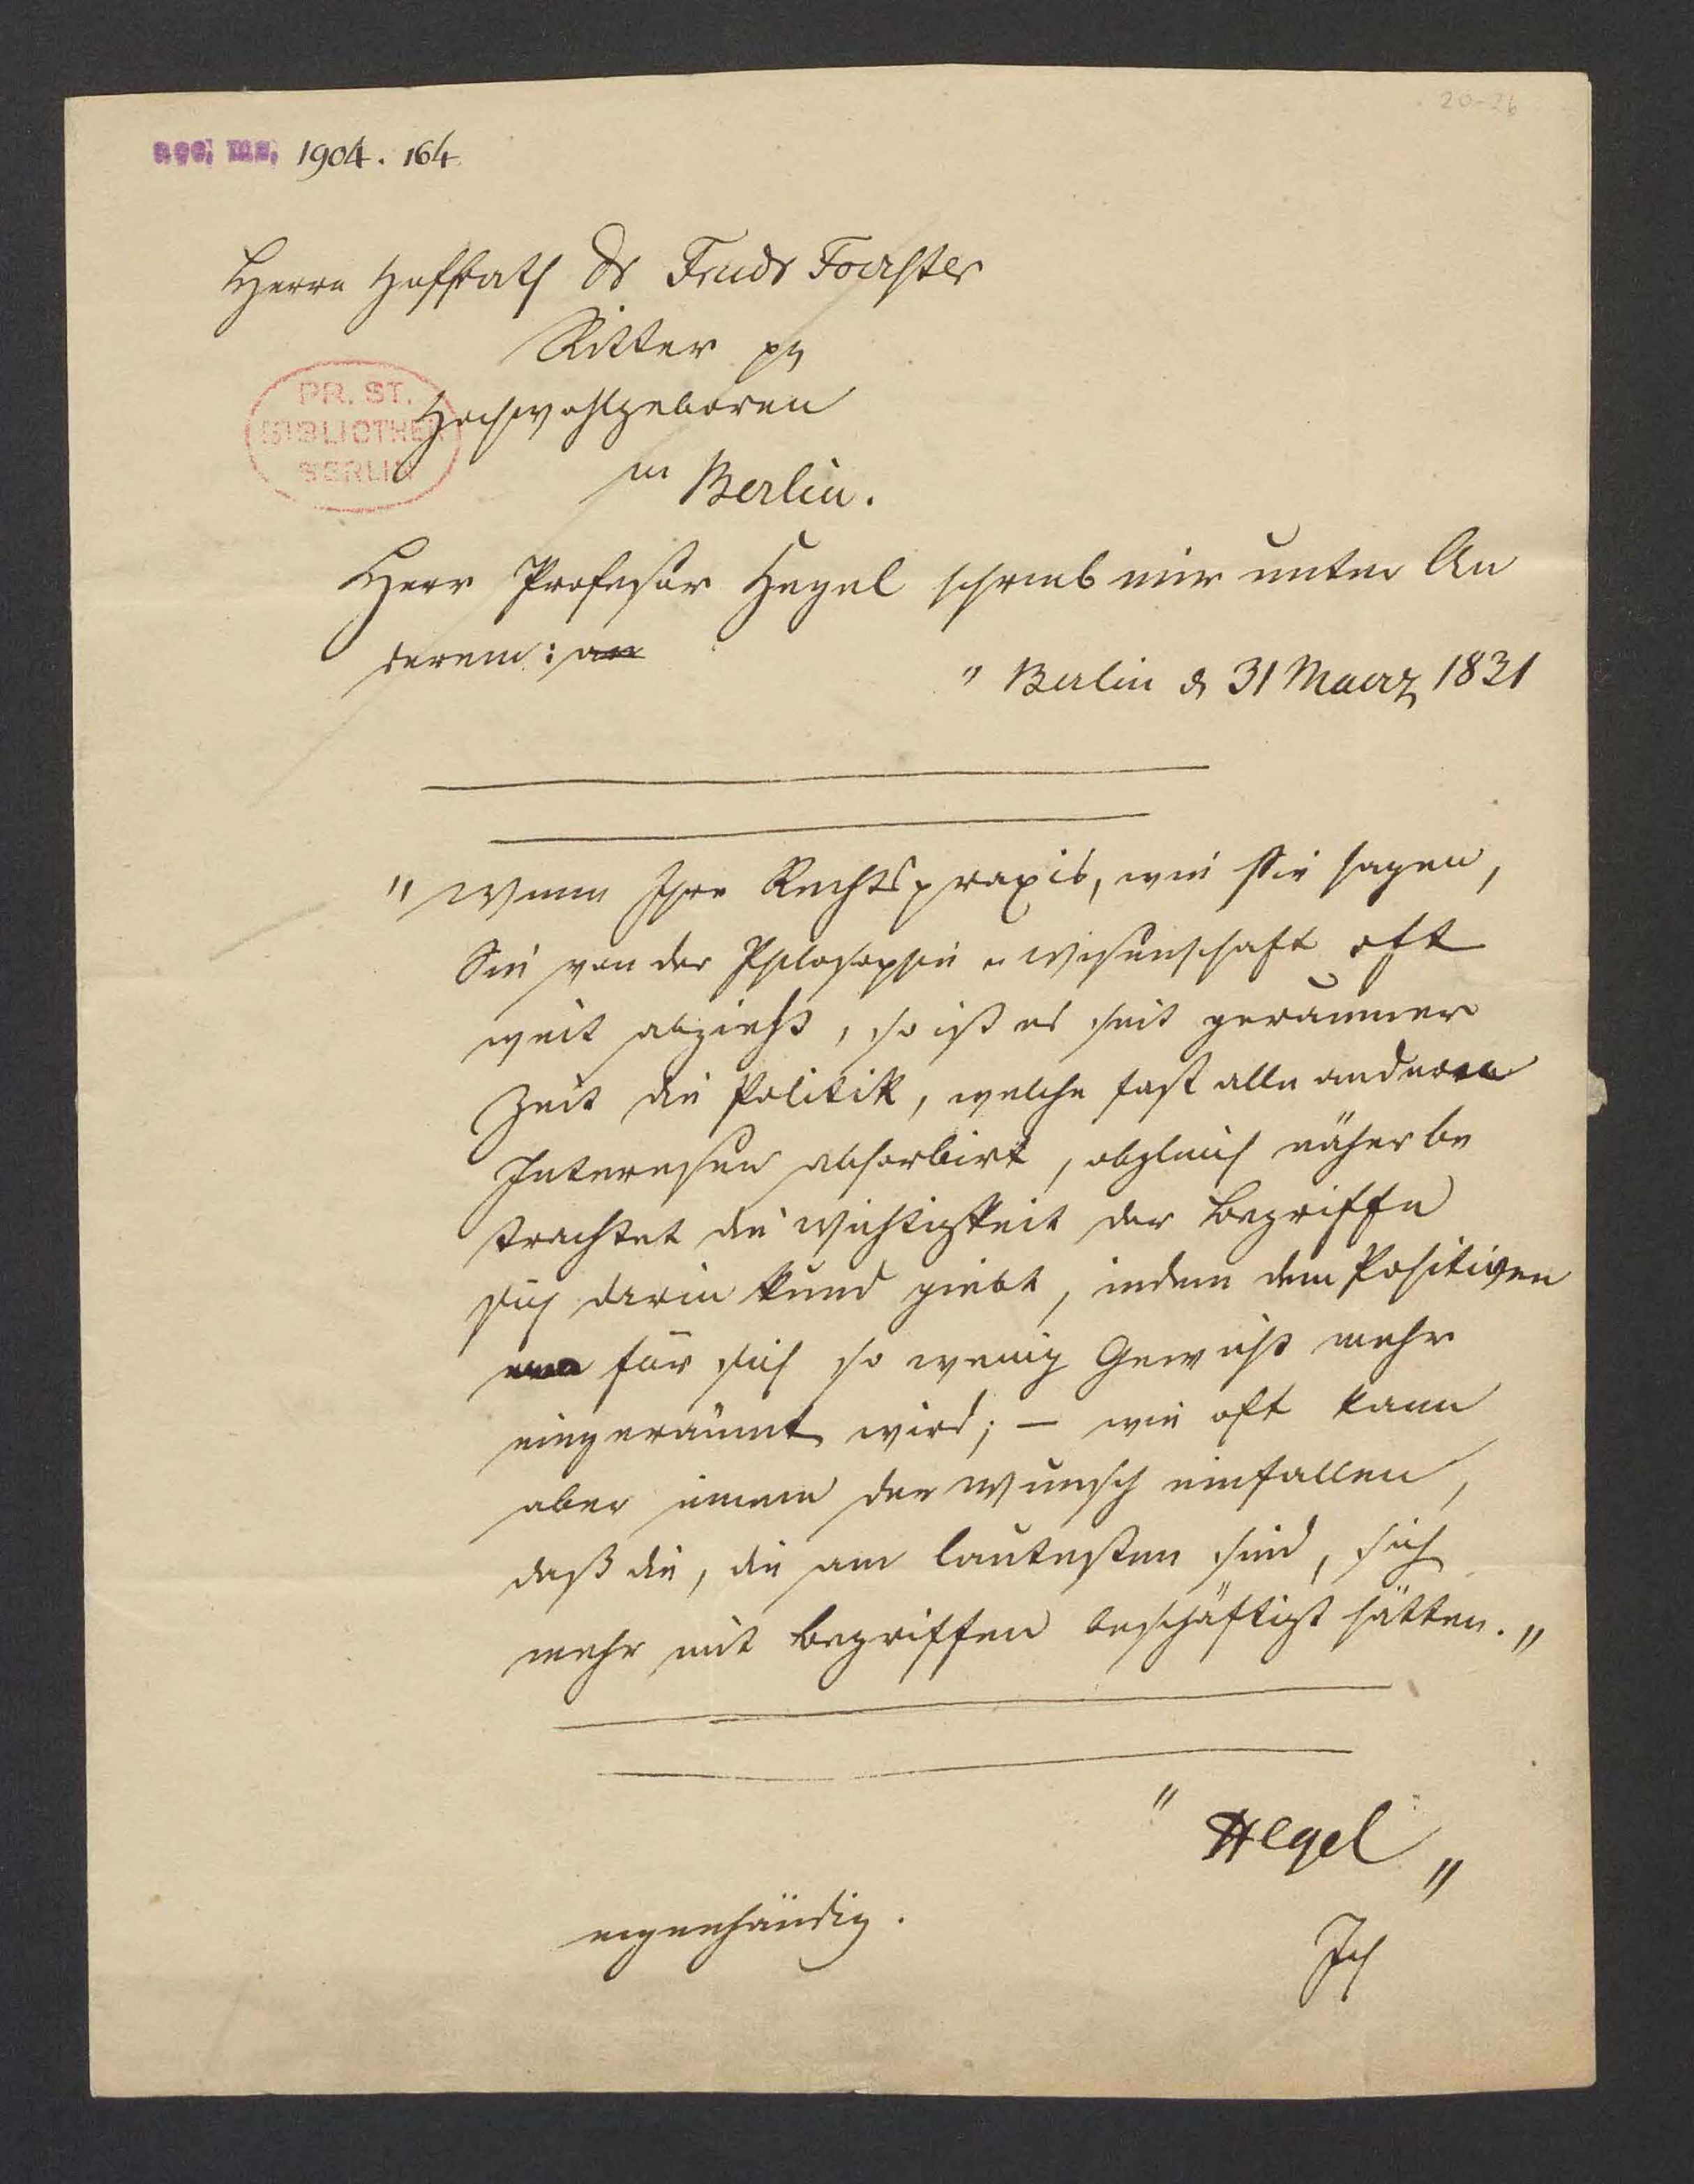 20-26
acc. ms. 1904. 164
Herrn Hofrath Dr Friedr Foerster
Ritter pp
Hochwohlgeboren
PR. ST.
BIBLIOTHEK
BERLIN
in Berlin.
Herr Professor Hegel schrieb mir unter An
derem: an
" Berlin d 31 Maerz 1831
" Wenn Ihre Rechtspraxis, wie Sie sagen,
Sie von der Philosophie u Wissenschaft oft
weit abzieht, so ist es seit geraumer
Zeit die Politik, welche fast alle anderen
Interessen absorbirt, obgleich näher be
trachtet die Wichtigkeit der Begriffe
sich darin kund giebt, indem dem Positiven
für sich so wenig Gewicht mehr
eingeräumt wird; — wie oft kann
aber einem der Wunsch einfallen,
daß die, die am lautesten sind, sich
mehr mit Begriffen beschäftigt hätten. "
" Hegel "
eigenhändig.